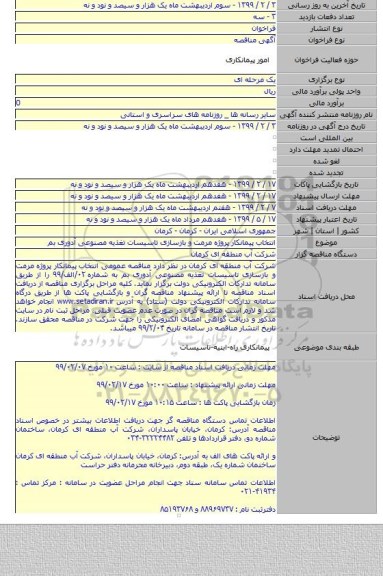 تاریخ آخرین به روز رسانی ۱۳۹۹ / ۲ / ۳ - سوم اردیبهشت ماه یک هزار و سیصد و نود و نه
تعداد دفعات بازدید ۳ - سه
نوع انتشار فراخوان
نوع فراخوان آگهی مناقصه
حوزه فعالیت فراخوان امور پیمانکاری
نوع برگزاری یک مرحله ای
واحد پولی برآورد مالی ریال
برآورد مالی 0
نام روزنامه منتشر کننده آگهی سایر رسانه ها _ روزنامه های سراسری و استانی
تاریخ درج آگهی در روزنامه ۱۳۹۹ / ۲ / ۳ - سوم اردیبهشت ماه یک هزار و سیصد و نود و نه
بین المللی است
احتمال تمدید مهلت دارد
لغو شده
تجدید شده
تاریخ بازگشایی پاکات ۱۳۹۹ / ۲ / ۱۷ - هفدهم اردیبهشت ماه یک هزار و سیصد و نود و نه
مهلت ارسال پیشنهاد ۱۳۹۹ / ۲ / ۱۷ - هفدهم اردیبهشت ماه یک هزار و سیصد و نود و نه
مهلت دریافت اسناد ۱۳۹۹ / ۲ / ۷ - هفتم اردیبهشت ماه یک هزار و سیصد و نود و نه
تاریخ اعتبار پیشنهاد ۱۳۹۹ / ۵ / ۱۷ - هفدهم مرداد ماه یک هزار و سیصد و نود و نه
کشور | استان | شهر جمهوری اسلامی ایران - کرمان - کرمان
موضوع انتخاب پیمانکار پروژه مرمت و بازسازی تاسیسات تغذیه مصنوعی ادوری بم
دستگاه مناقصه گزار شرکت آب منطقه ای کرمان
محل دریافت اسناد
شرکت آب منطقه ای کرمان در نظر دارد مناقصه عمومی انتخاب پیمانکار پروژه مرمت
و بازسازی تاسیسات تغذیه مصنوعی ادوری بم به شماره ۰۲/الف/۹۹ را از طریق
سامانه تدارکات الکترونیکی دولت برگزار نماید. کلیه مراحل برگزاری مناقصه از دریافت
اسناد مناقصه تا ارائه پیشنهاد مناقصه گران و بازگشایی پاکت ها از طریق درگاه
سامانه تدارکات الکترونیکی دولت (ستاد) به آدرس www.setadiran.ir انجام خواهد
شد و لازم است مناقصه گران در صورت عدم عضویت قبلی، مراحل ثبت نام در سایت
مذکور و دریافت گواهی امضای الکترونیکی را جهت شرکت در مناقصه محقق سازند.
تاریخ انتشار مناقصه در سامانه تاریخ ۹۹/۲/۰۳ میباشد.
طبقه بندی موضوعی پیمانکاری راه-ابنیه-تاسیسات
توضیحات
مهلت زمانی دریافت اسناد مناقصه از سایت : ساعت ۱۰ مورخ ۹۹/۰۲/۰۷
مهلت زمانی ارائه پیشنهاد : ساعت ۱۰:۰۰ مورخ ۹۹/۰۲/۱۷
زمان بازگشایی پاکت ها : ساعت ۱۰:۱۵ مورخ ۹۹/۰۲/۱۷
اطلاعات تماس دستگاه مناقصه گر جهت دریافت اطلاعات بیشتر در خصوص اسناد
مناقصه آدرس: کرمان، خیابان پاسداران، شرکت آب منطقه ای کرمان، ساختمان
شماره دو، دفتر قراردادها و تلفن ۳۲۲۲۴۴۸۲-۰۳۴
و ارائه پاکت های الف به آدرس: کرمان، خیابان پاسداران، شرکت آب منطقه ای کرمان
ساختمان شماره یک، طبقه دوم، دبیرخانه محرمانه دفتر حراست
اطلاعات تماس سامانه ستاد جهت انجام مراحل عضویت در سامانه : مرکز تماس :
۰۲۱-۴۱۹۳۴
دفتر ثبت نام : ۸۸۹۶۹۷۳۷ و ۸۵۱۹۳۷۶۸